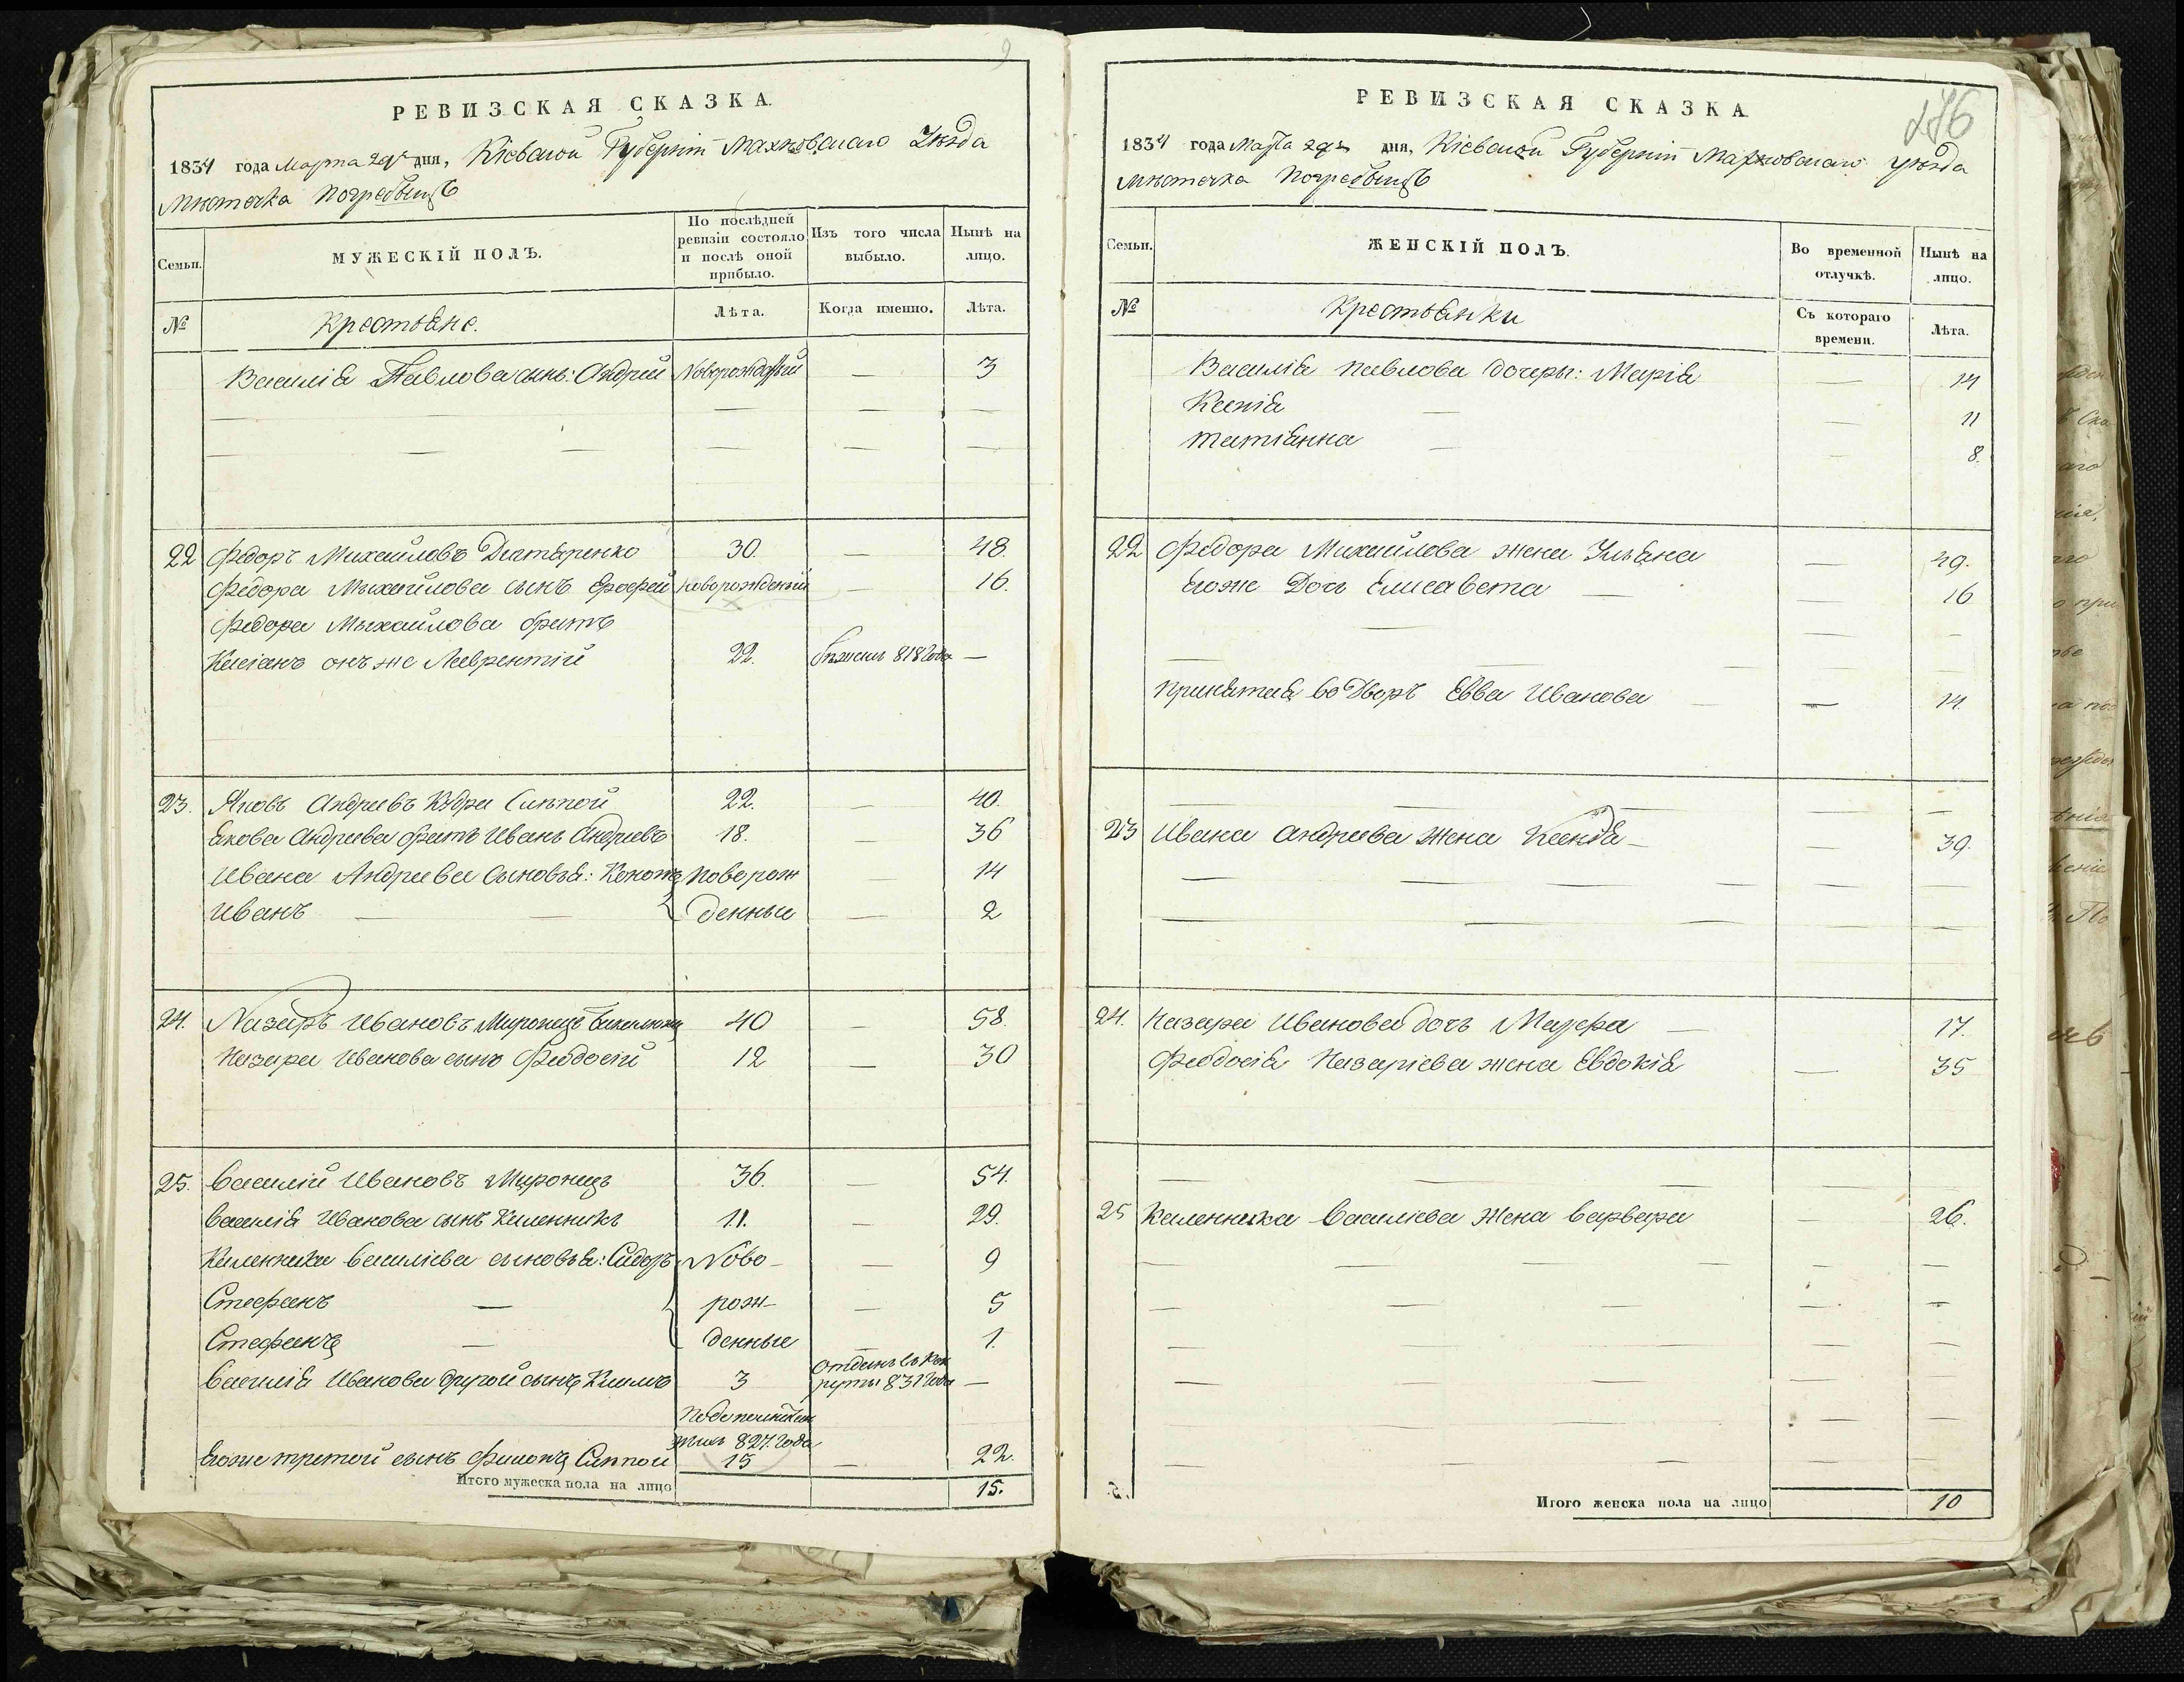 РЕВИЗСКАЯ СКАЗКА.
1834 года Марта 29 дня, Кіевской Губерніи Махновскаго Уѣзда
Мѣстечка Погребыщъ
Семьи.
МУЖЕСКІЙ ПОЛЪ.
По послѣдней ревизіи состояло и послѣ оной прибыло.
Изъ того числа выбыло.
Нынѣ на лицо.
№
Крестьяне.
Лѣта.
Когда именно.
Лѣта.
Василія Павлова сынъ: Андрей Новорожденый — 3
22 Федоръ Михайловъ Дегтяренко 30. — 48.
Федора Михайлова сынъ Ерофей новорожденый — 16.
Федора Михайлова братъ
Касіанъ онъ же Лаврентій 22. бѣжалъ 818 года —
23. Яковъ Андреевъ Слѣпой 22. — 40.
Якова Андреева братъ Иванъ Андреевъ 18. — 36
Ивана Андреева сыновья: Кононъ новорож — 14
Иванъ — — денныи — 2
24. Назаръ Ивановъ Миронецъ 40 — 58.
Назара Иванова сынъ Феодосій 12 — 30
25. Василій Ивановъ Миронецъ 36. — 54.
Василія Иванова сынъ Каленникъ 11. — 29.
Каленника Василіева сыновья: Сидоръ Ново — 9
Стефанъ — рож — 5
Стефанъ — денные — 1.
Василія Иванова другой сынъ Климъ 3 отданъ въ рек
руты 831 года —
827. года
Егоже третой сынъ Филипъ Слѣпой 15 — 22.
Итого мужеска пола на лицо 15.
276
РЕВИЗСКАЯ СКАЗКА
1834 года Марта 29 дня, Кіевской Губерніи Махновскаго уѣзда
Мѣстечка Погребыщъ
Семьи.
ЖЕНСКІЙ ПОЛЪ.
Во временной отлучкѣ.
Нынѣ на лицо.
№
Крестьянки
Съ котораго времени.
Лѣта.
Василія Павлова дочеры: Марія — 14
Ксенія — — 11
Татіанна — — 8.
22 Федора Михайлова жена Ульяна — 49.
Егоже Дочь Елисавета — — 16
Принятая во Дворъ Евва Иванова — — 14.
23 Ивана Андреева жена Ксенія — — 39.
24. Назара Иванова дочь Марфа — 17.
Феодосія Назаріева жена Евдокія — 35
25 Каленника Василіева жена Варвара — 26.
Итого женска пола на лицо 10